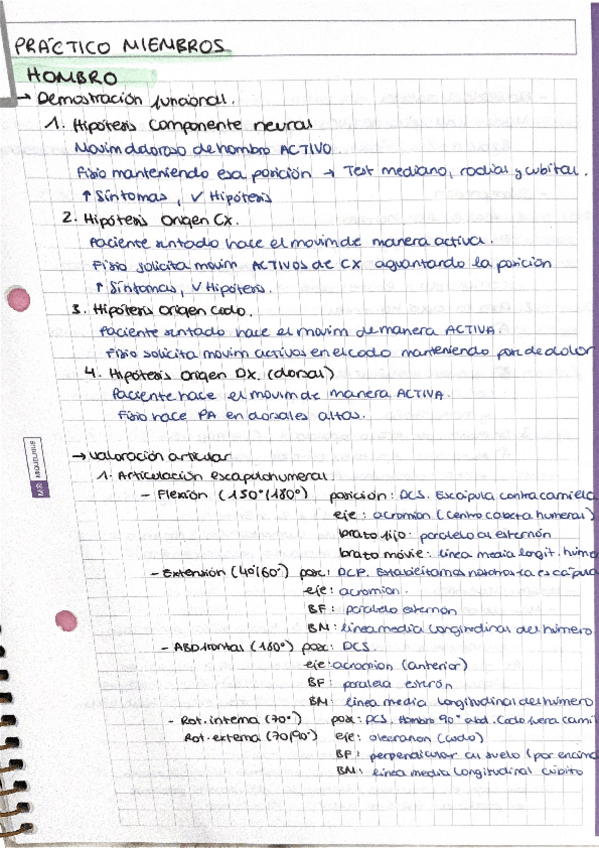 PRÁCTICO MIEMBROS
HOMBRO
→ Demostración funcional.
1. Hipótesis componente neural
Movim doloroso de hombro ACTIVO.
Fisio manteniendo esa posición → Test mediano, radial y cubital.
↑ Síntomas, ✓ Hipótesis
2. Hipótesis origen CX.
Paciente sentado hace el movim de manera activa.
Fisio solicita movim ACTIVOS de CX aguantando la posición
↑ Síntomas, ✓ Hipótesis.
3. Hipótesis origen codo.
Paciente sentado hace el movim de manera ACTIVA.
Fisio solicita movim activos en el codo manteniendo pos de dolor
4. Hipótesis origen DX. (dorsal)
Paciente hace el movim de manera ACTIVA.
Fisio hace PA en dorsales altas.
→ Valoración articular
1. Articulación escapulohumeral
- Flexión (150°/180°) posición: DCS. Escápula contra camilla
eje: acromion (centro cabeza humeral)
brazo fijo: paralelo al esternón
brazo móvil: línea media longit. húme
- Extensión (40°/60°) pos: DCP. Estabilizamos nosotros la escápula
eje: acromion.
BF: paralelo esternón
BM: línea media longitudinal del húmero
- ABD frontal (180°) pos: DCS.
eje: acromion (anterior)
BF: paralela esterón
BM: línea media longitudinal del húmero
- Rot. interna (70°) pos: DCS. Hombro 90° abd. Codo fuera cami
Rot. externa (70/90°) eje: olecranon (codo)
BF: perpendicular al suelo (por encima
BM: línea media longitudinal cúbito
MIQUELRIUS